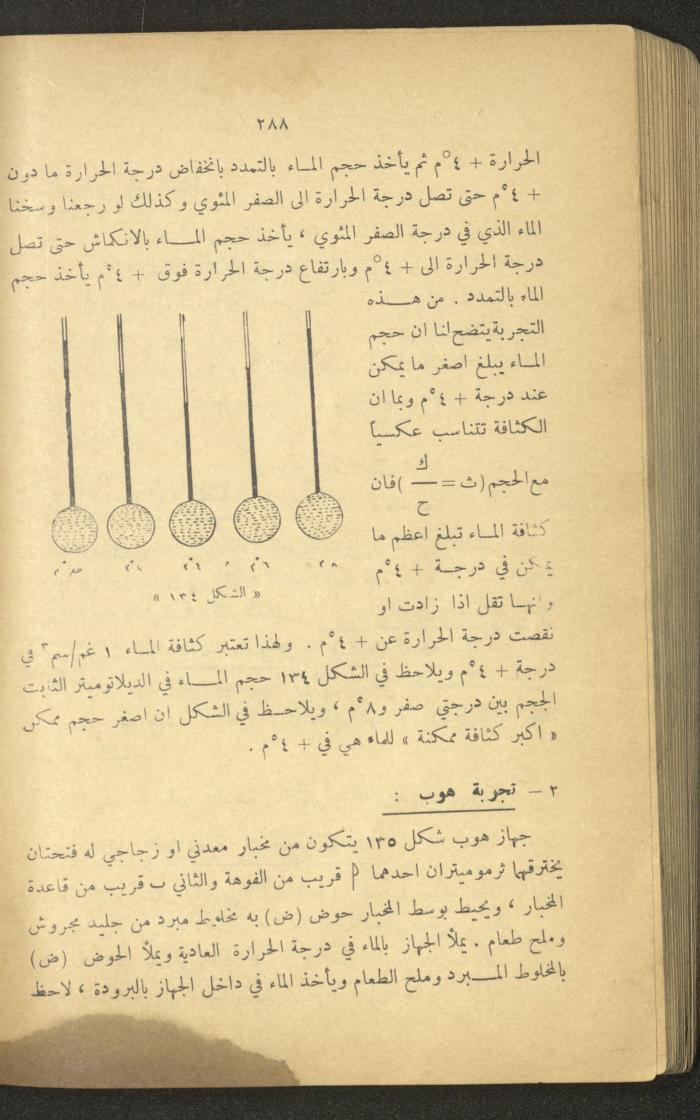 ٢٨٨
الحرارة + ٤°م ثم يأخذ حجم المــاء بالتمدد بانخفاض درجة الحرارة ما دون
+ ٤°م حتى تصل درجة الحرارة الى الصفر المئوي وكذلك لو رجعنا وسخنا
الماء الذي في درجة الصفر المئوي ، يأخذ حجم المــــاء بالانكماش حتى تصل
درجة الحرارة الى + ٤°م وبارتفاع درجة الحرارة فوق + ٤°م يأخذ حجم
الماء بالتمدد . من هـــذه
التجربة يتضح لنا ان حجم
المــاء يبلغ اصغر ما يمكن
عند درجة + ٤°م وبما ان
الكثافة تتناسب عكسياً
مع الحجم (ث = ك / ح) فان
كثافة المــاء تبلغ اعظم ما
يمكن في درجــة + ٤°م
وانهــا تقل اذا زادت او
٨°م ٦°م ٤°م ٢°م صفر°م
« الشكل ١٣٤ »
نقصت درجة الحرارة عن + ٤°م . ولهذا تعتبر كثافة المـاء ١ غم/سم٣ في
درجة + ٤°م ويلاحظ في الشكل ١٣٤ حجم المــــاء في الديلاتوميتر الثابت
الحجم بين درجتي صفر و٨°م ، ويلاحــظ في الشكل ان اصغر حجم ممكن
« اكبر كثافة ممكنة » للماء هي في + ٤°م .
٢ – تجربة هوب :
جهاز هوب شكل ١٣٥ يتكون من مخبار معدني او زجاجي له فتحتان
يخترقهما ثرموميتران احدهما أ قريب من الفوهة والثاني ب قريب من قاعدة
المخبار ، ويحيط بوسط المخبار حوض (ض) به مخلوط مبرد من جليد مجروش
وملح طعام . يملأ الجهاز بالماء في درجة الحرارة العادية ويملأ الحوض (ض)
بالمخلوط المــــبرد وملح الطعام ويأخذ الماء في داخل الجهاز بالبرودة ، لاحظ